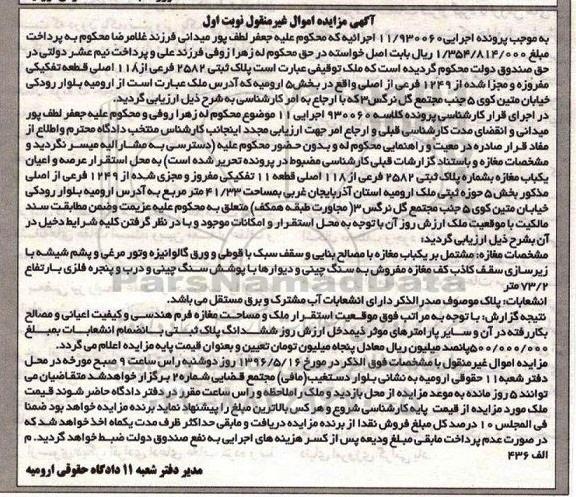 آگهی مزایده اموال غیرمنقول نوبت اول
به موجب پرونده اجرایی ۱۱/۹۳۰۰۶۰ اجرائیه که محکوم علیه جعفر لطف پور میدانی فرزند غلامرضا محکوم به پرداخت
مبلغ ۱/۳۵۴/۸۱۴/۰۰۰ ریال بابت اصل خواسته در حق محکوم له زهرا زوفی فرزند علی و پرداخت نیم عشر دولتی در
حق صندوق دولت محکوم گردیده است که ملک توقیفی عبارت است پلاک ثبتی ۲۵۸۲ فرعی از۱۱۸ اصلی قطعه تفکیکی
مفروزه و مجزا شده از ۱۲۴۹ فرعی از اصلی واقع در بخش۵ ارومیه که آدرس ملک عبارت است از ارومیه بلوار رودکی
خیابان متین کوی ۵ جنب مجتمع گل نرگس۳که با ارجاع به امر کارشناسی به شرح ذیل ارزیابی گردید.
در اجرای قرار کارشناسی پرونده کلاسه ۹۳۰۰۶۰ اجرایی ۱۱ موضوع محکوم له زهرا روفی و محکوم علیه جعفر لطف پور
میدانی و انقضای مدت کارشناسی قبلی و ارجاع امر جهت ارزیابی مجدد اینجانب کارشناس منتخب دادگاه محترم واطلاع از
مفاد قرار صادره در معیت و راهنمایی محکوم له و بدون حضور محکوم علیه (دسترسی به مشارالیه میسر نگردید و
مشخصات مغازه و باستناد گزارشات قبلی کارشناسی مضبوط در پرونده تحریر شده است) به محل استقرار عرصه و اعیان
یکباب مغازه بشماره پلاک ثبتی ۲۵۸۲ فرعی از۱۱۸ اصلی قطعه ۱۱ تفکیکی مفروز و مجزی شده از ۱۲۴۹ فرعی از اصلی
مذکور بخش ۵ حوزه ثبتی ملک ارومیه استان آذربایجان غربی بمساحت ۴۱/۳۳ متر مربع به آدرس ارومیه بلوار رودکی
خیابان متین کوی ۵ جنب مجتمع گل نرگس ۳( مجاورت طبقه همکف) متعلق به محکوم علیه عزیمت وضمن مطابقت سند
مالکیت با موقعیت ملک ارزش روز آن با توجه به محل استقرار و امکانات موجود و با در نظر گرفتن کلیه شرایط دخیل در
آن بشرح ذیل ارزیابی گردید:
مشخصات مغازه: مشتمل بر یکباب مغازه با مصالح بنایی و سقف سبک با قوطی و ورق گالوانیزه وتور مرغی و پشم شیشه با
زیرسازی سقف کاذب کف مغازه مفروش به سنگ چینی و دیوارها با پوشش سنگ چینی و درب و پنجره فلزی بارتفاع
۷۳/۲ متر
انشعابات: پلاک موصوف صدر الذکر دارای انشعابات آب مشترک و برق مستقل می باشد.
نتیجه گزارش: با توجه به مراتب فوق موقعیت استقرار ملک و مساحت مغازه فرم هندسی و کیفیت اعیانی و مصالح
بکاررفته در آن و سایر پارامترهای موثر ذیمدخل ارزش روز ششدانگ پلاک ثبتی بانضمام انشعابات بمبلغ
۵۰۰/۰۰۰/۰۰۰پانصد میلیون ریال معادل پنجاه میلیون تومان تعیین و بعنوان قیمت پایه مزایده اعلام می گردد.
مزایده اموال غیرمنقول با مشخصات فوق الذکر در مورخ ۱۳۹۶/۵/۱۶ روز دوشنبه راس ساعت ۹ صبح مورخه در محل
دفتر شعبه۱۱ حقوقی ارومیه به نشانی بلوار دستغیب(مافی) مجتمع قضایی شماره۲ برگزار خواهدشد متقاضیان می
توانند ۵ روز مانده به موعد مزایده از محل بازدید و ملک را ملاحظه و راس ساعت مقرر در دفتر دادگاه حاضر شوند قیمت
ملک مورد مزایده از قیمت پایه کارشناسی شروع و هر کس بالاترین مبلغ را پیشنهاد نماید برنده مزایده خواهد بود ضمنا
فی المجلس ۱۰ درصد کل مبلغ فروش نقدا از برنده مزایده دریافت و مابقی حداکثر ظرف مدت یکماه اخذ خواهد شد که
در صورت عدم پرداخت مابقی مبلغ ودیعه پس از کسر هزینه های اجرایی به نفع صندوق دولت ضبط خواهد گردید. م
الف ۴۳۶
مدیر دفتر شعبه ۱۱ دادگاه حقوقی ارومیه
ParsNamadData